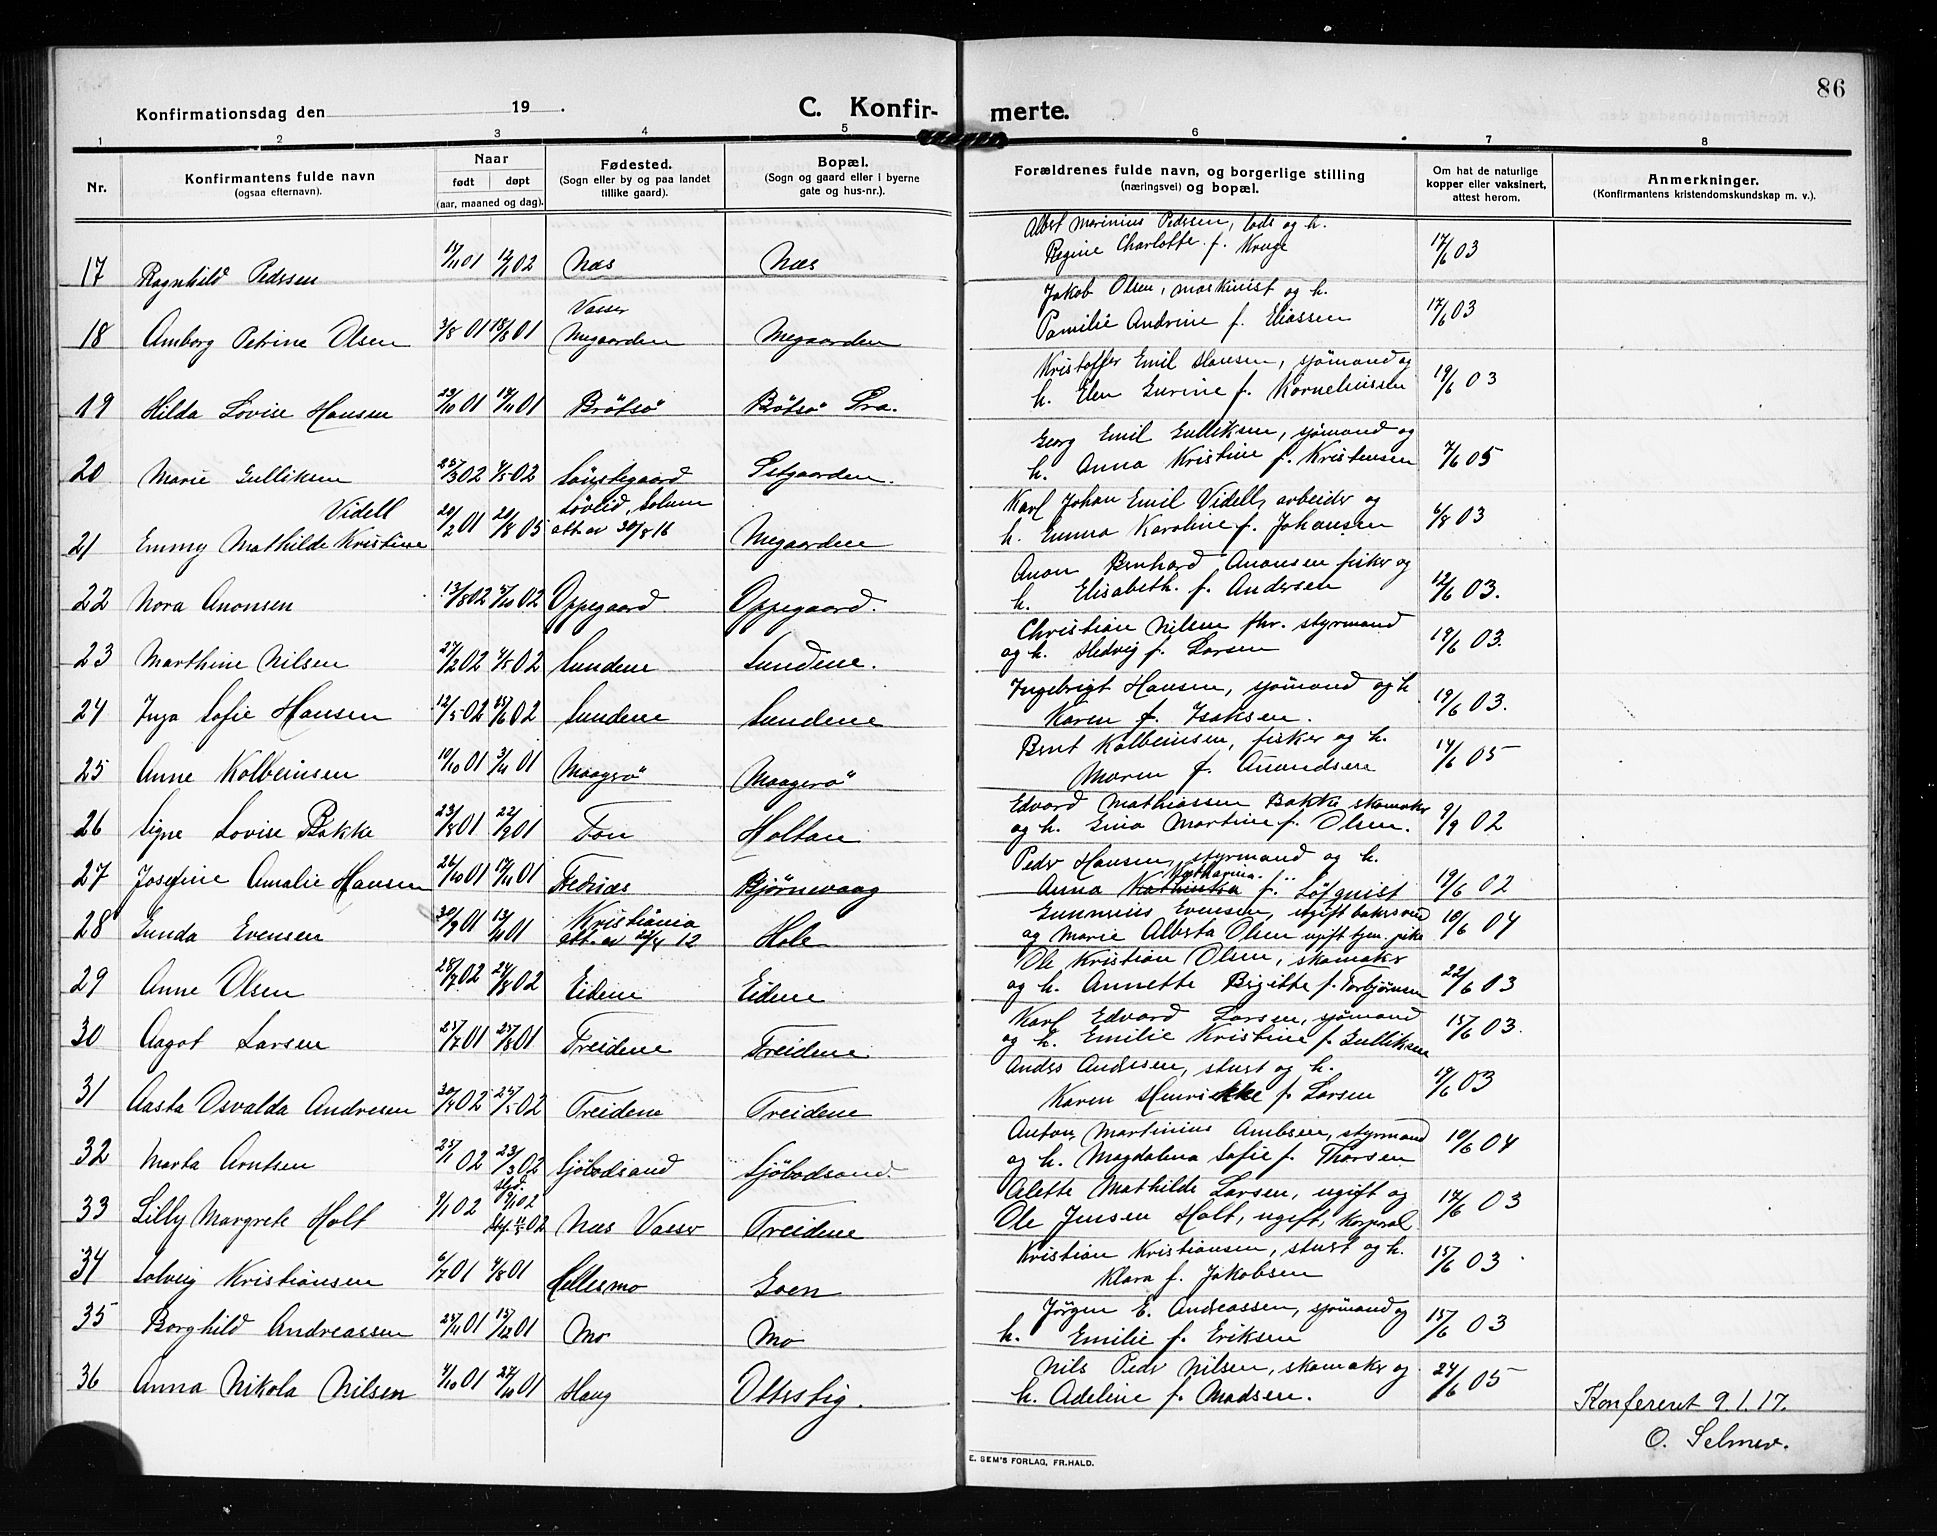 86
Konfirmationsdag den 19 .
C. Konfir- merte.
1 2 3 4 5 6 7 8
Nr.
Konfirmantens fulde navn
(ogsaa efternavn).
Naar
født døpt
(aar, maaned og dag).
Fødested.
(Sogn eller by og paa landet
tillike gaard).
Bopæl.
(Sogn og gaard eller i byerne
gate og hus-nr.).
Forældrenes fulde navn, og borgerlige stilling
(næringsvei) og bopæl.
Om hat de naturlige
kopper eller vaksinert,
attest herom.
Anmerkninger.
(Konfirmantens kristendomskundskap m. v.).
Albert Marinius Pedersen, lods og h.
17 Ragnhild Pedersen Næs Næs Regine Charlotte f. Kruge 17/6 03
Vasser Jakob Olsen, maskinist og h.
18 Amborg Petrine Olsen 3/8 01 18/8 01 Megaarden Megaarden Pamilie Andrine f. Eliassen 17/6 03
Kristoffer Emil Hansen, sjömand og
19 Hilda Lovise Hansen 23/10 01 17/11 01 Brötsö Bötsö Lra. h. Elen Gurine f. Korneliussen 19/6 03
Georg Emil Gulliksen, sjömand og
20 Marie Gulliksen 25/3 02 4/5 02 h. Anna Kristine f. Kristensen 7/6 05
Videll Lövlid, Solum Karl Johan Emil Videll, arbeider og
21 Emmy Mathilde Kristine 20/2 01 20/8 05 att. av 30/8 16 Megaarden h. Emma Karoline f. Johansen 6/8 03
Anon Bernhard Anonsen fisker og
22 Nora Anonsen 13/8 02 5/10 02 Oppegaard Oppegaard. h. Elisabeth f. Andersen 12/6 03.
Christian Nilsen fhr. styrmand
23 Marthine Nilsen 27/2 02 4/5 02 Sundene Sundene. og h. Hedvig f. Larsen 19/6 03.
Ingebrigt Hansen, sjömand og h
24 Inga Sofie Hansen 12/5 02 15/6 02 Sundene Sundene Karen f. Isaksen. 19/6 03.
Bernt Kolbeinsen, fisker og h.
25 Anne Kolbeinsen 10/10 01 3/11 01 Maagerö Maagerö Maren f. Amundsen 14/6 05
Edvard Mathiassen Bakke skomaker
26 Signe Lovise Bakke 23/8 01 22/9 01 Fon Holtan og h. Gina Martine f. Olsen. 9/9 02
Peder Hansen, styrmand og h.
27 Josefine Amalie Hansen 26/10 01 17/11 01 Frednæs Bjørnevaag Anna Katharina f. Löfquist 19/6 02
Kristiania Gunnius Evensen, ugift baksvend
28 Gunda Evensen 30/9 01 att. av 22/4 12 Hole og Marie Alberta Olsen ugift tjen. pike 10/6 04
Ole Kristian Olsen, skomaker
29 Anne Olsen 28/7 02 24/8 02 Eidene Eidene og h. Annette Birgitte f. Torbjørnsen 22/6 03
Karl Edvard Larsen, sjömand
30 Aagot Larsen 25/7 01 25/8 01 Treidene Treidene og h. Emilie Kristine f. Gulliksen 15/6 03.
Anders Andersen, stuert og h.
31 Aasta Osvalda Andresen 30/4 02 25/5 02 Treidene Treidene Karen Henrikke f. Larsen 19/6 03
Anton Martinius Arntsen, styrmand
32 Marta Arntsen 25/1 02 23/3 02 Sjöbodsand Sjöbodsand. og h. Magdalena Sofie f. Thorsen 10/6 04
Alette Mathilde Larsen, ugift og
33 Lilly Margrete Holt 9/1 02 Næs Vasser Treidene Ole Jensen Holt, ugift, korporal 17/6 03
Kristian Kristiansen, stuert og h.
34 Solveig Kristiansen 6/7 01 4/8 01 Hellesmo Goen Klara f. Jakobsen 15/6 03
Jörgen E. Andreassen, sjömand og
35 Borghild Andreassen 25/11 01 15/12 01 Mo Mo h. Emilie f. Eriksen 15/6 03
Nils Peder Nilsen, skomaker og
36 Anna Nikola Nilsen 4/10 01 27/10 01 Haug Otterstig. h. Adeline f. Madsen. 24/6 05
Konfereret 9.1.17.
O. Selmer.
E. SEM'S FORLAG, FR.HALD.